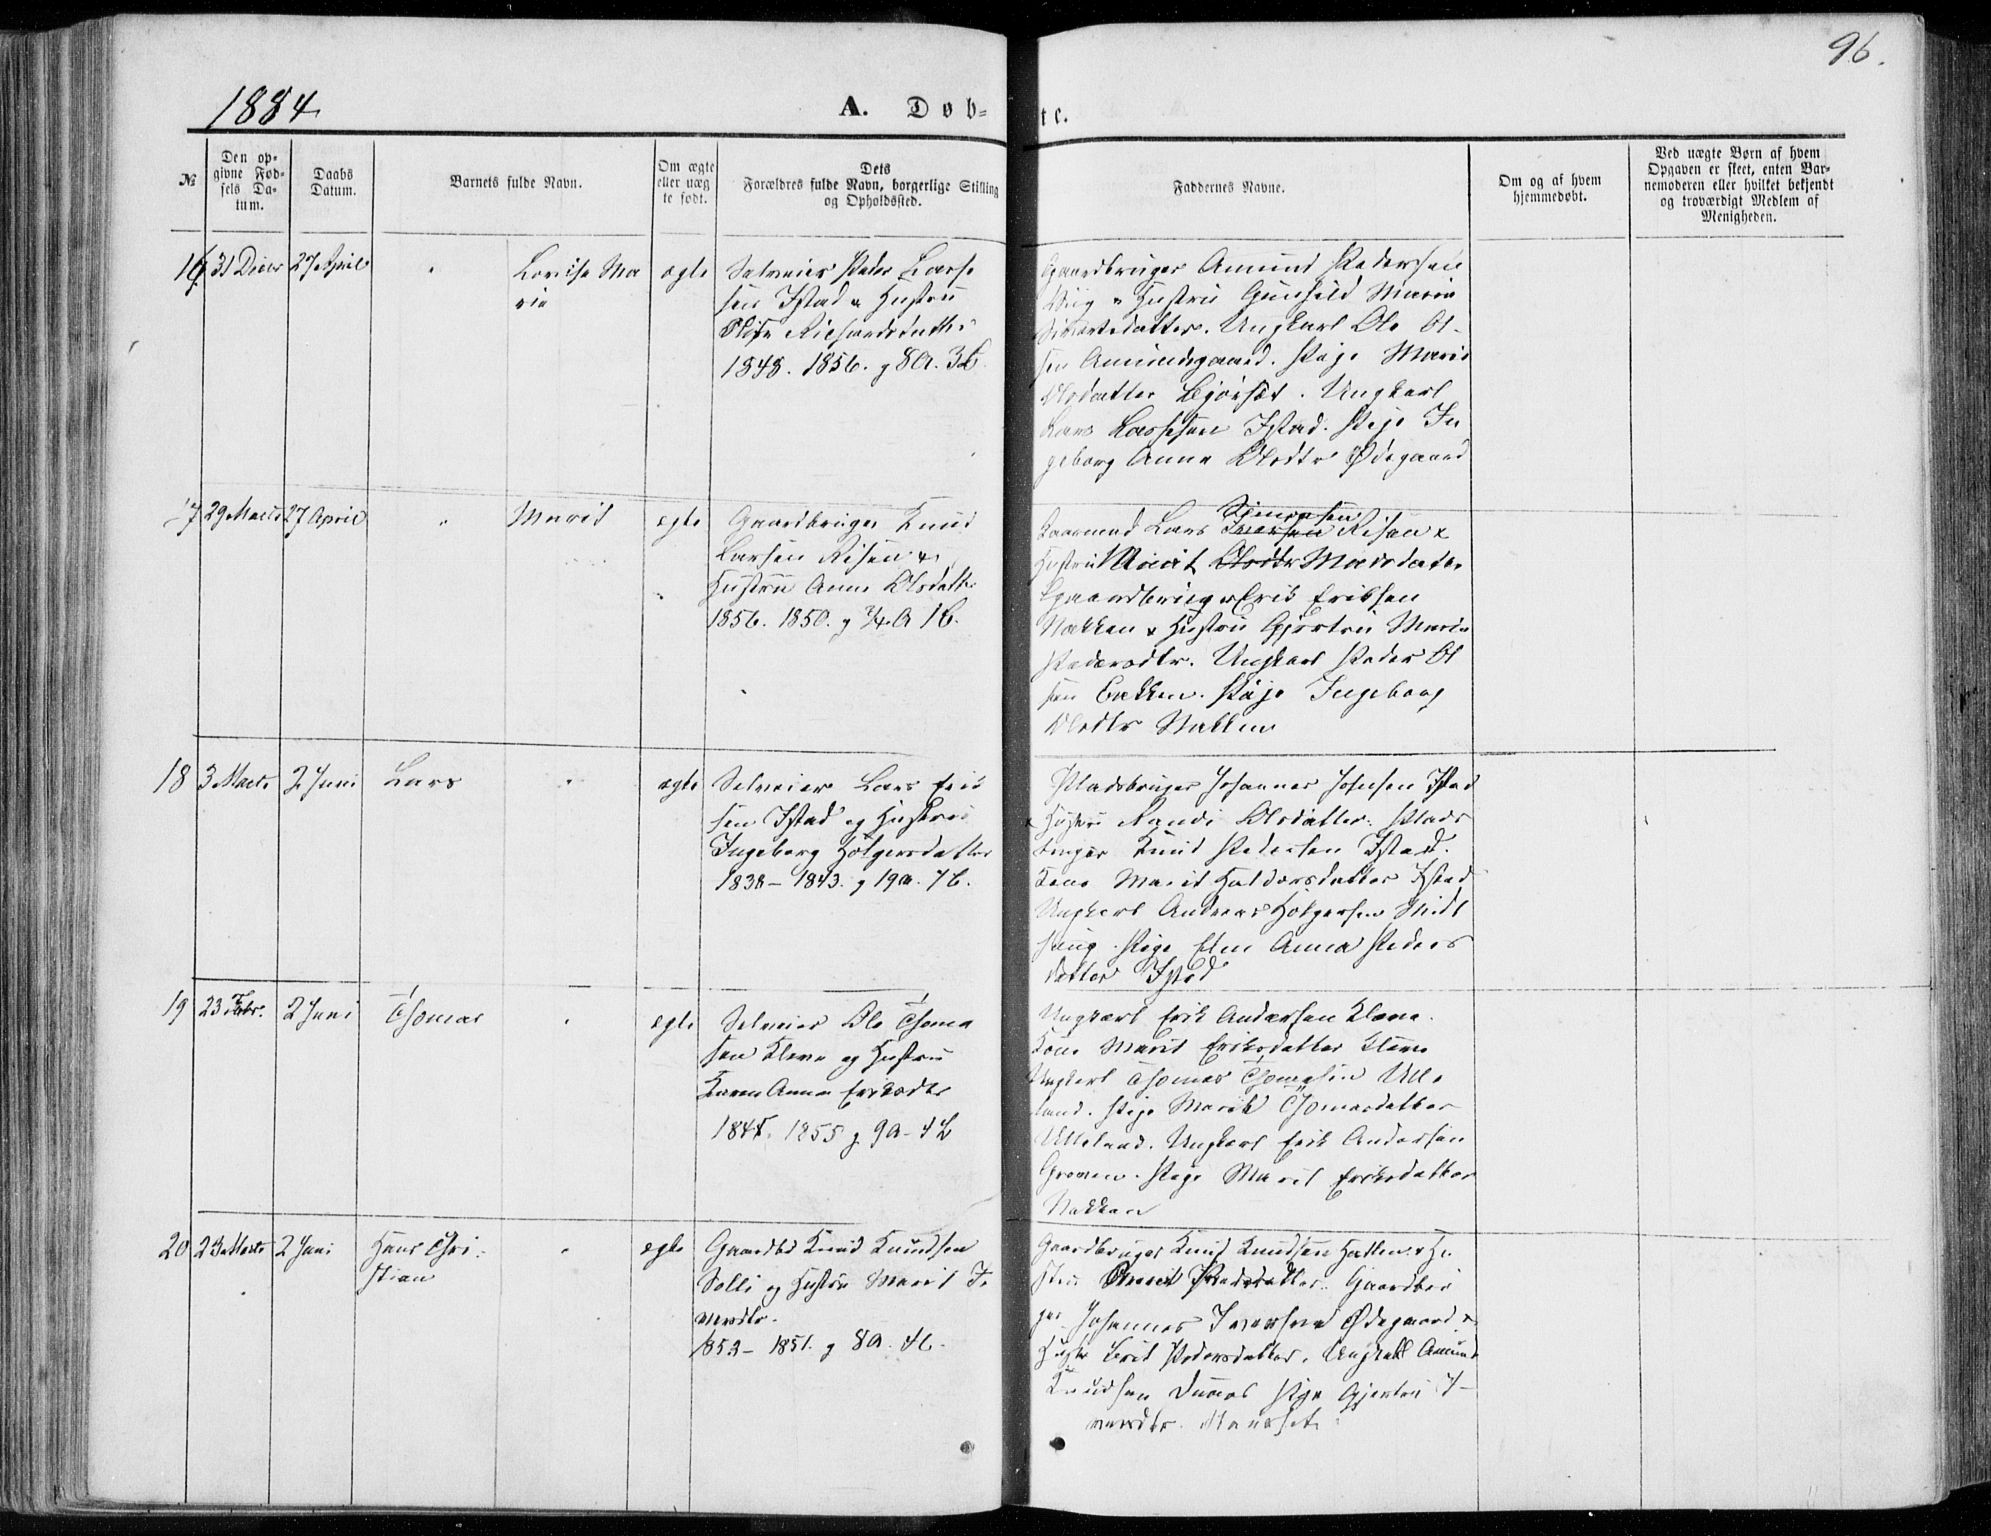 96.
1884
A. Døb-
te.
№
Den op-
givne Fød-
sels Da-
tum.
Daabs
Datum.
Barnets fulde Navn.
Om ægte
eller uæg
te født.
Dets
Forældres fulde Navn, borgerlige Stilling
og Opholdssted.
Faddernes Navne.
Om og af hvem
hjemmedøbt.
Ved uægte Børn af hvem
Opgaven er skeet, enten Bar-
nemoderen eller hvilket bekjendt
og troværdigt Medlem af
Menigheden.
16. 31 27 April " Lovise Ma
rie
ægte
Selveier Peder Larse
sen Istad & Hustru
Richardsdatter
1848. 1856. g 8 A. 3 B.
Gaardbruger Amund Pedersen
& Hustru Gunhild Marie
Sivertsdatter. Ungkarl Ole Ol-
sen Amundsgaard. Pige Marit
Olsdatter Bjørset. Ungkarl
Lars Larsen Istad. Pige In
geborg Anna Olsdtr Ødegaard
17 29 Marts 27 April " Marit
ægte
Gaardbruger Knud
Larsen Risen &
Hustru Anne Olsdatter
1856. 1850. g 3/4 A 1 B.
Simonsen
Kaarmand Lars Iversen Risen &
Hustru Marit Olsdtr Marsdatter
Gaardbruger Erik Eriksen
Nakken & Hustru Gjertru Marie
Pedersdtr. Ungkarl Peder Ol
sen Bakken. Pige Ingeborg
Olsdtr Nakken
18 3 Marts 2 Juni Lars "
ægte
Selveier Lars Erik
sen Istad og Hustru
Ingeborg Holgersdatter
1838 - 1843. g 19 A. 7 B.
Pladsbruger Johannes Johnsen Istad
& Hustru Randi Olsdatter. Plads
bruger Knud Pedersen Istad.
Kone Marit Haldorsdatter Istad
Ungkarl Andreas Holgersen Midt
haug. Pige Elen Anna Peders
datter Istad
19 23 Febr. 2 Juni Thomas "
ægte
Selveier Ole Thoma
sen Kleve og Hustru
Karen Anna Eriksdtr
1845. 1855 g 9 A - 4 B
Ungkarl Erik Andersen Kleve.
Kone Marit Eriksdatter Kleve
Ungkarl Thomas Thomasen Ulle
land. Pige Marit Thomasdatter
Ulleland. Ungkarl Erik Andersen
Groven. Pige Marit Eriksdatter
Nakken
20 23 Marts 2 Juni Hans Chri-
stian
"
ægte
Gaardbr Knud Knudsen
Solli og Hustru Marit I
versdtr.
1853 - 1851. g 8 A. 4 B.
Gaardbruger Knud Knudsen Hatlen & Hu
stru Marit Pedersdatter. Gaardbru
ger Johannes Iversen Ødegaard &
Hustr Berit Pedersdatter. Ungkarl Amund
Knudsen Pige Gjertru I-
versdtr.